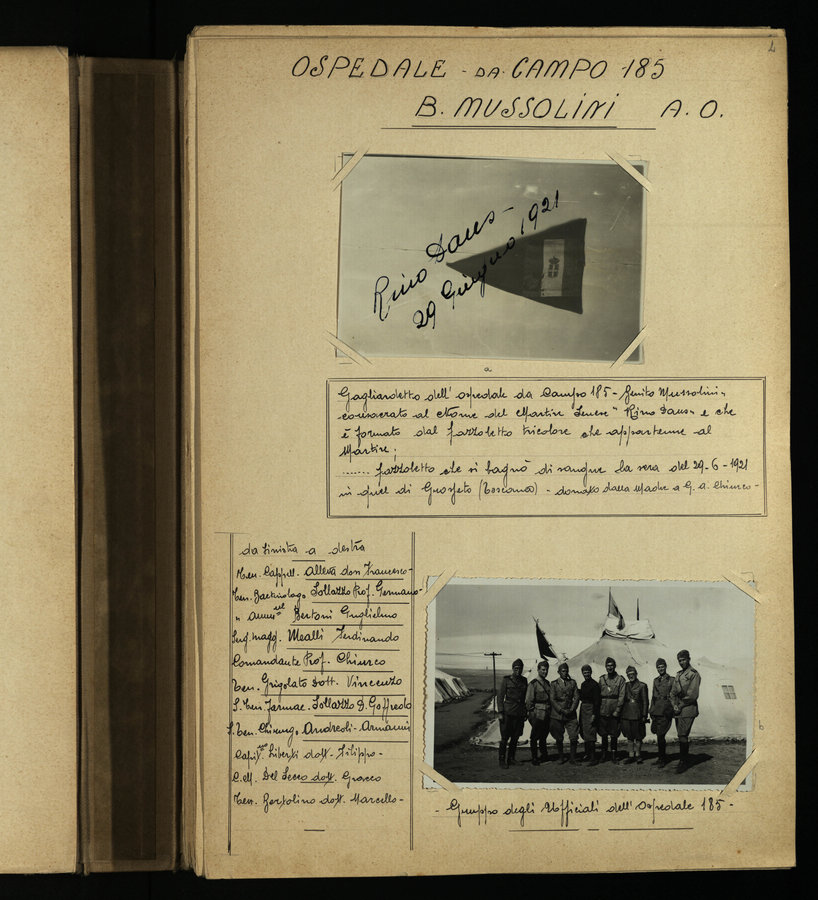 1
OSPEDALE - DA CAMPO 185
B. MUSSOLINI A. O.
Rino Daus -
29 Giugno 1921
a
Gagliardetto dell' ospedale da Campo 185 - Benito Mussolini -
consacrato al Nome del Martire Senese " Rino Daus " e che
è formato dal fazzoletto tricolore che appartenne al
Martire ;
....... fazzoletto che si bagnò di sangue la sera del 29-6-1921
in quel di Grosseto (Toscana) - donato dalla Madre a G. A. Chiurco -
da sinistra a destra
Ten. Cappell. Alleva don Francesco -
Ten. Batteriologo Sollazzo Prof. Germano -
" Amm.vo Bertoni Guglielmo
Serg. magg. Mealli Ferdinando
Comandante Prof. Chiurco
Ten. Grigolato Dott. Vincenzo
S. Ten. Farmac. Sollazzo D. Goffredo
S. Ten. Chirurgo Andreoli - Armanni
Capit. Liberti dott. Filippo -
C.M. Del Secco dott. Greco
Ten. dott. Marcello -
b
- Gruppo degli Ufficiali dell' Ospedale 185 -